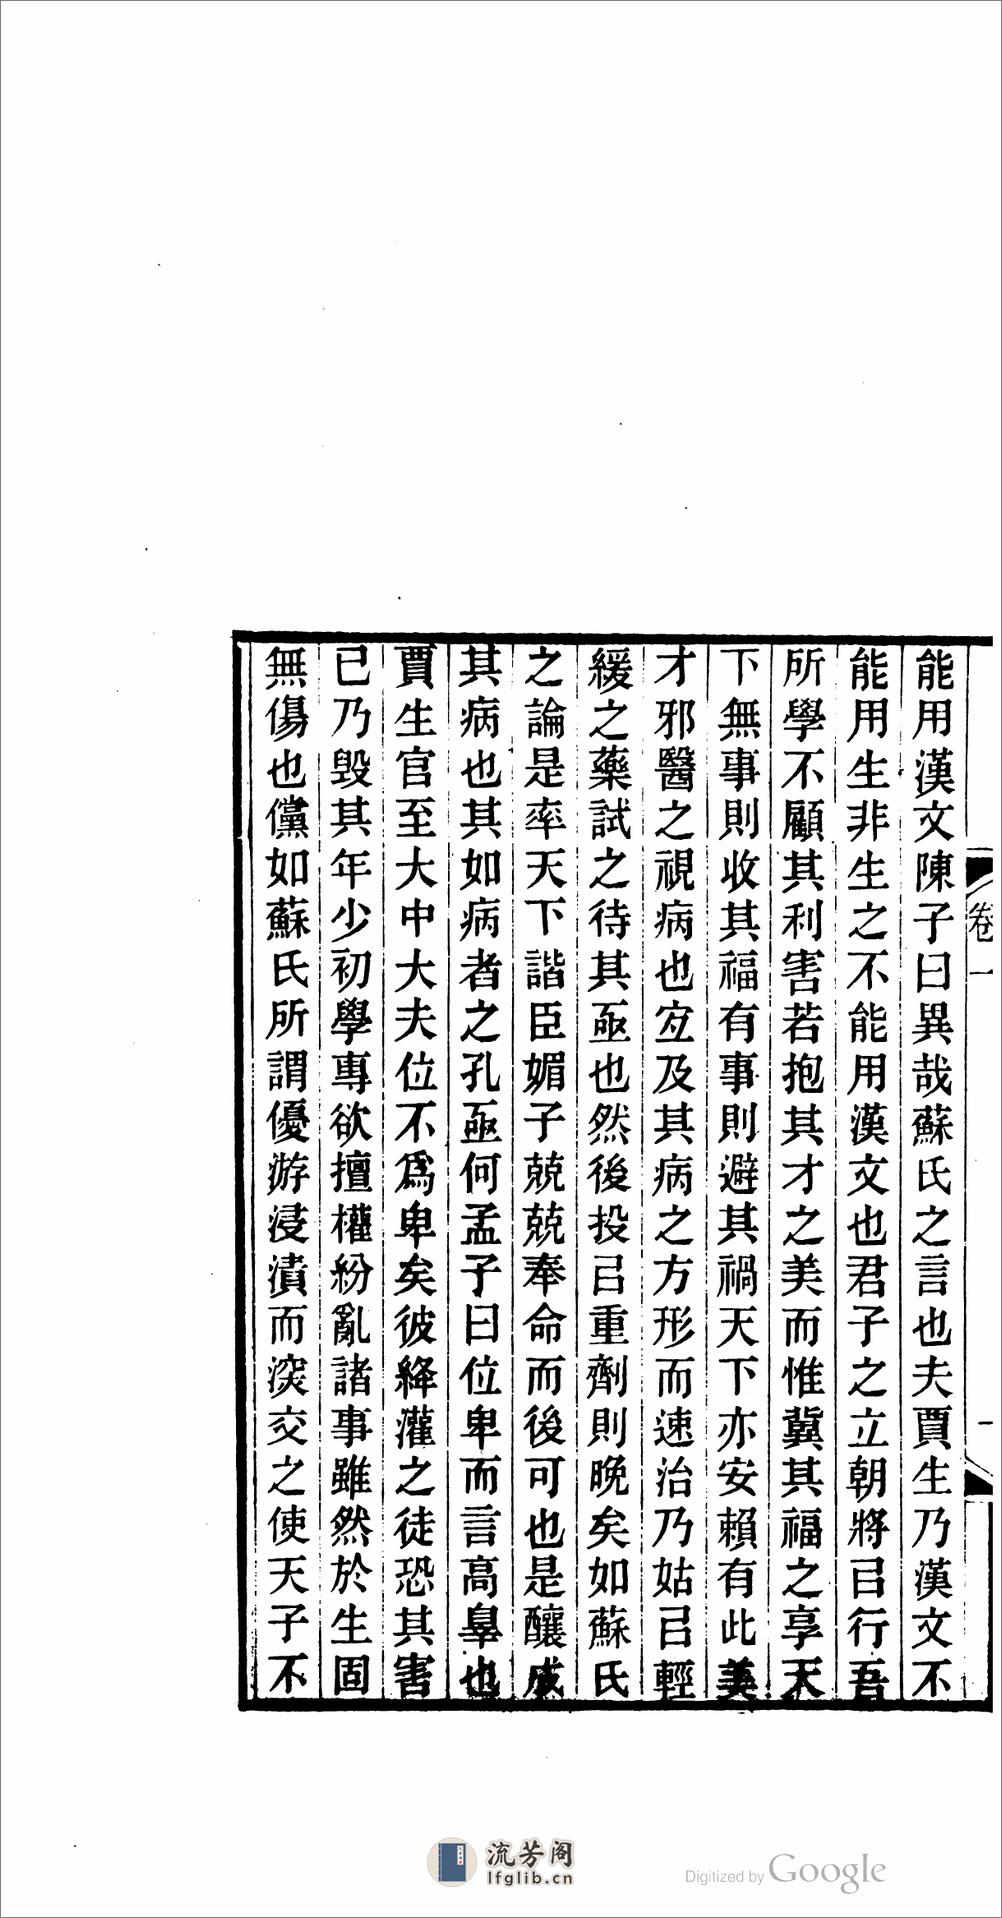 卷一
一
能用漢文陳子曰異哉蘇氏之言也夫賈生乃漢文不
能用生非生之不能用漢文也君子之立朝將㠯行吾
所學不顧其利害若抱其才之美而惟冀其福之享天
下無事則收其福有事則避其禍天下亦安賴有此美
才邪醫之視病也宐及其病之方形而速治乃姑㠯輕
緩之藥試之待其亟也然後投㠯重劑則晚矣如蘇氏
之論是率天下諧臣媚子兢兢奉命而後可也是釀成
其病也其如病者之孔亟何孟子曰位卑而言高辠也
賈生官至大中大夫位不爲卑矣彼絳灌之徒恐其害
已乃毀其年少初學專欲擅權紛亂諸事雖然於生固
無傷也儻如蘇氏所謂優游浸漬而深交之使天子不
流芳阁
lfglib.cn
Digitized by Google